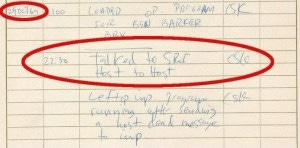 29 Oct 69 100 LOADED OP. PROGRAM CSK
FOR BEN BARKER
BBN
22:30 Talked to SRI CSK
Host to Host
Left imp program CSK
running after sending
a host dead message
to imp